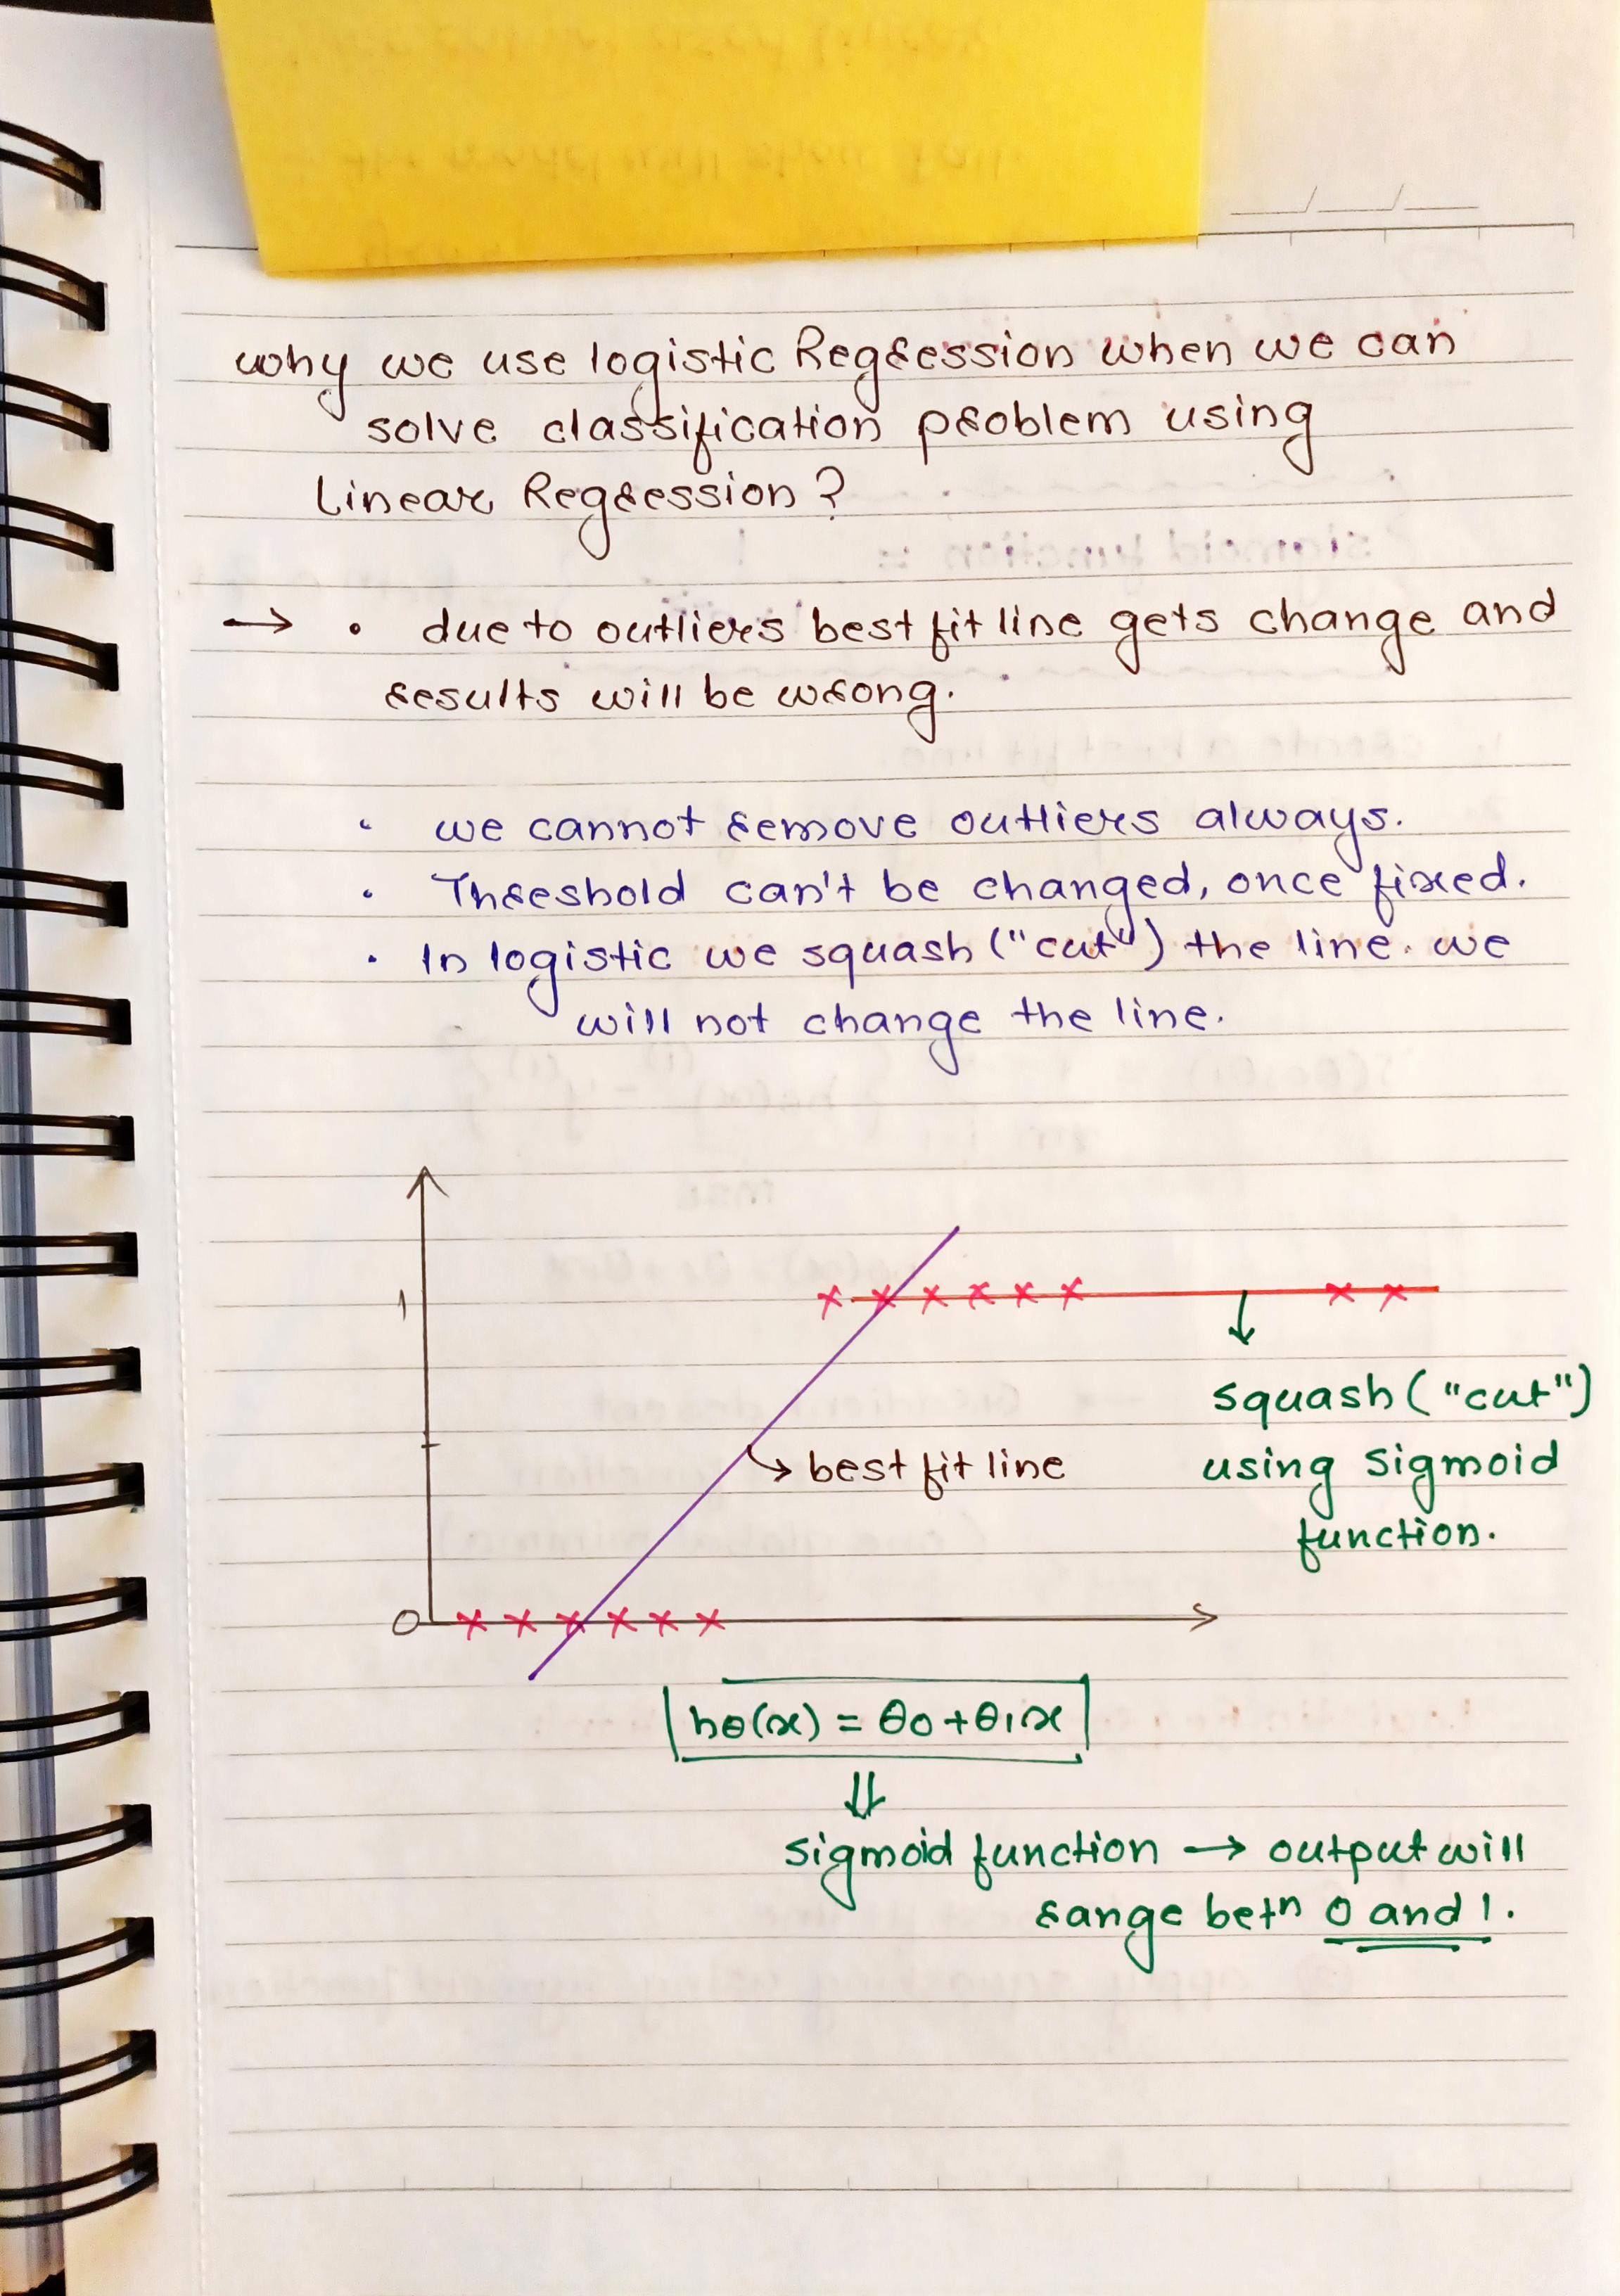 why we use logistic Regression when we can
solve classification problem using
linear Regression?
→ • due to outliers best fit line gets change and
results will be wrong.
• we cannot remove outliers always.
• Threshold can't be changed, once fixed.
• In logistic we squash ("cut") the line. we
will not change the line.
1
squash ("cut")
best fit line
using sigmoid
function.
0
hθ(x) = θ0 + θ1x
⇓
sigmoid function → output will
range betn 0 and 1.